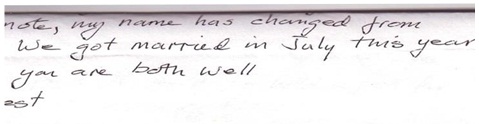 note, my name has changed from
We got married in July this year
you are both well
est